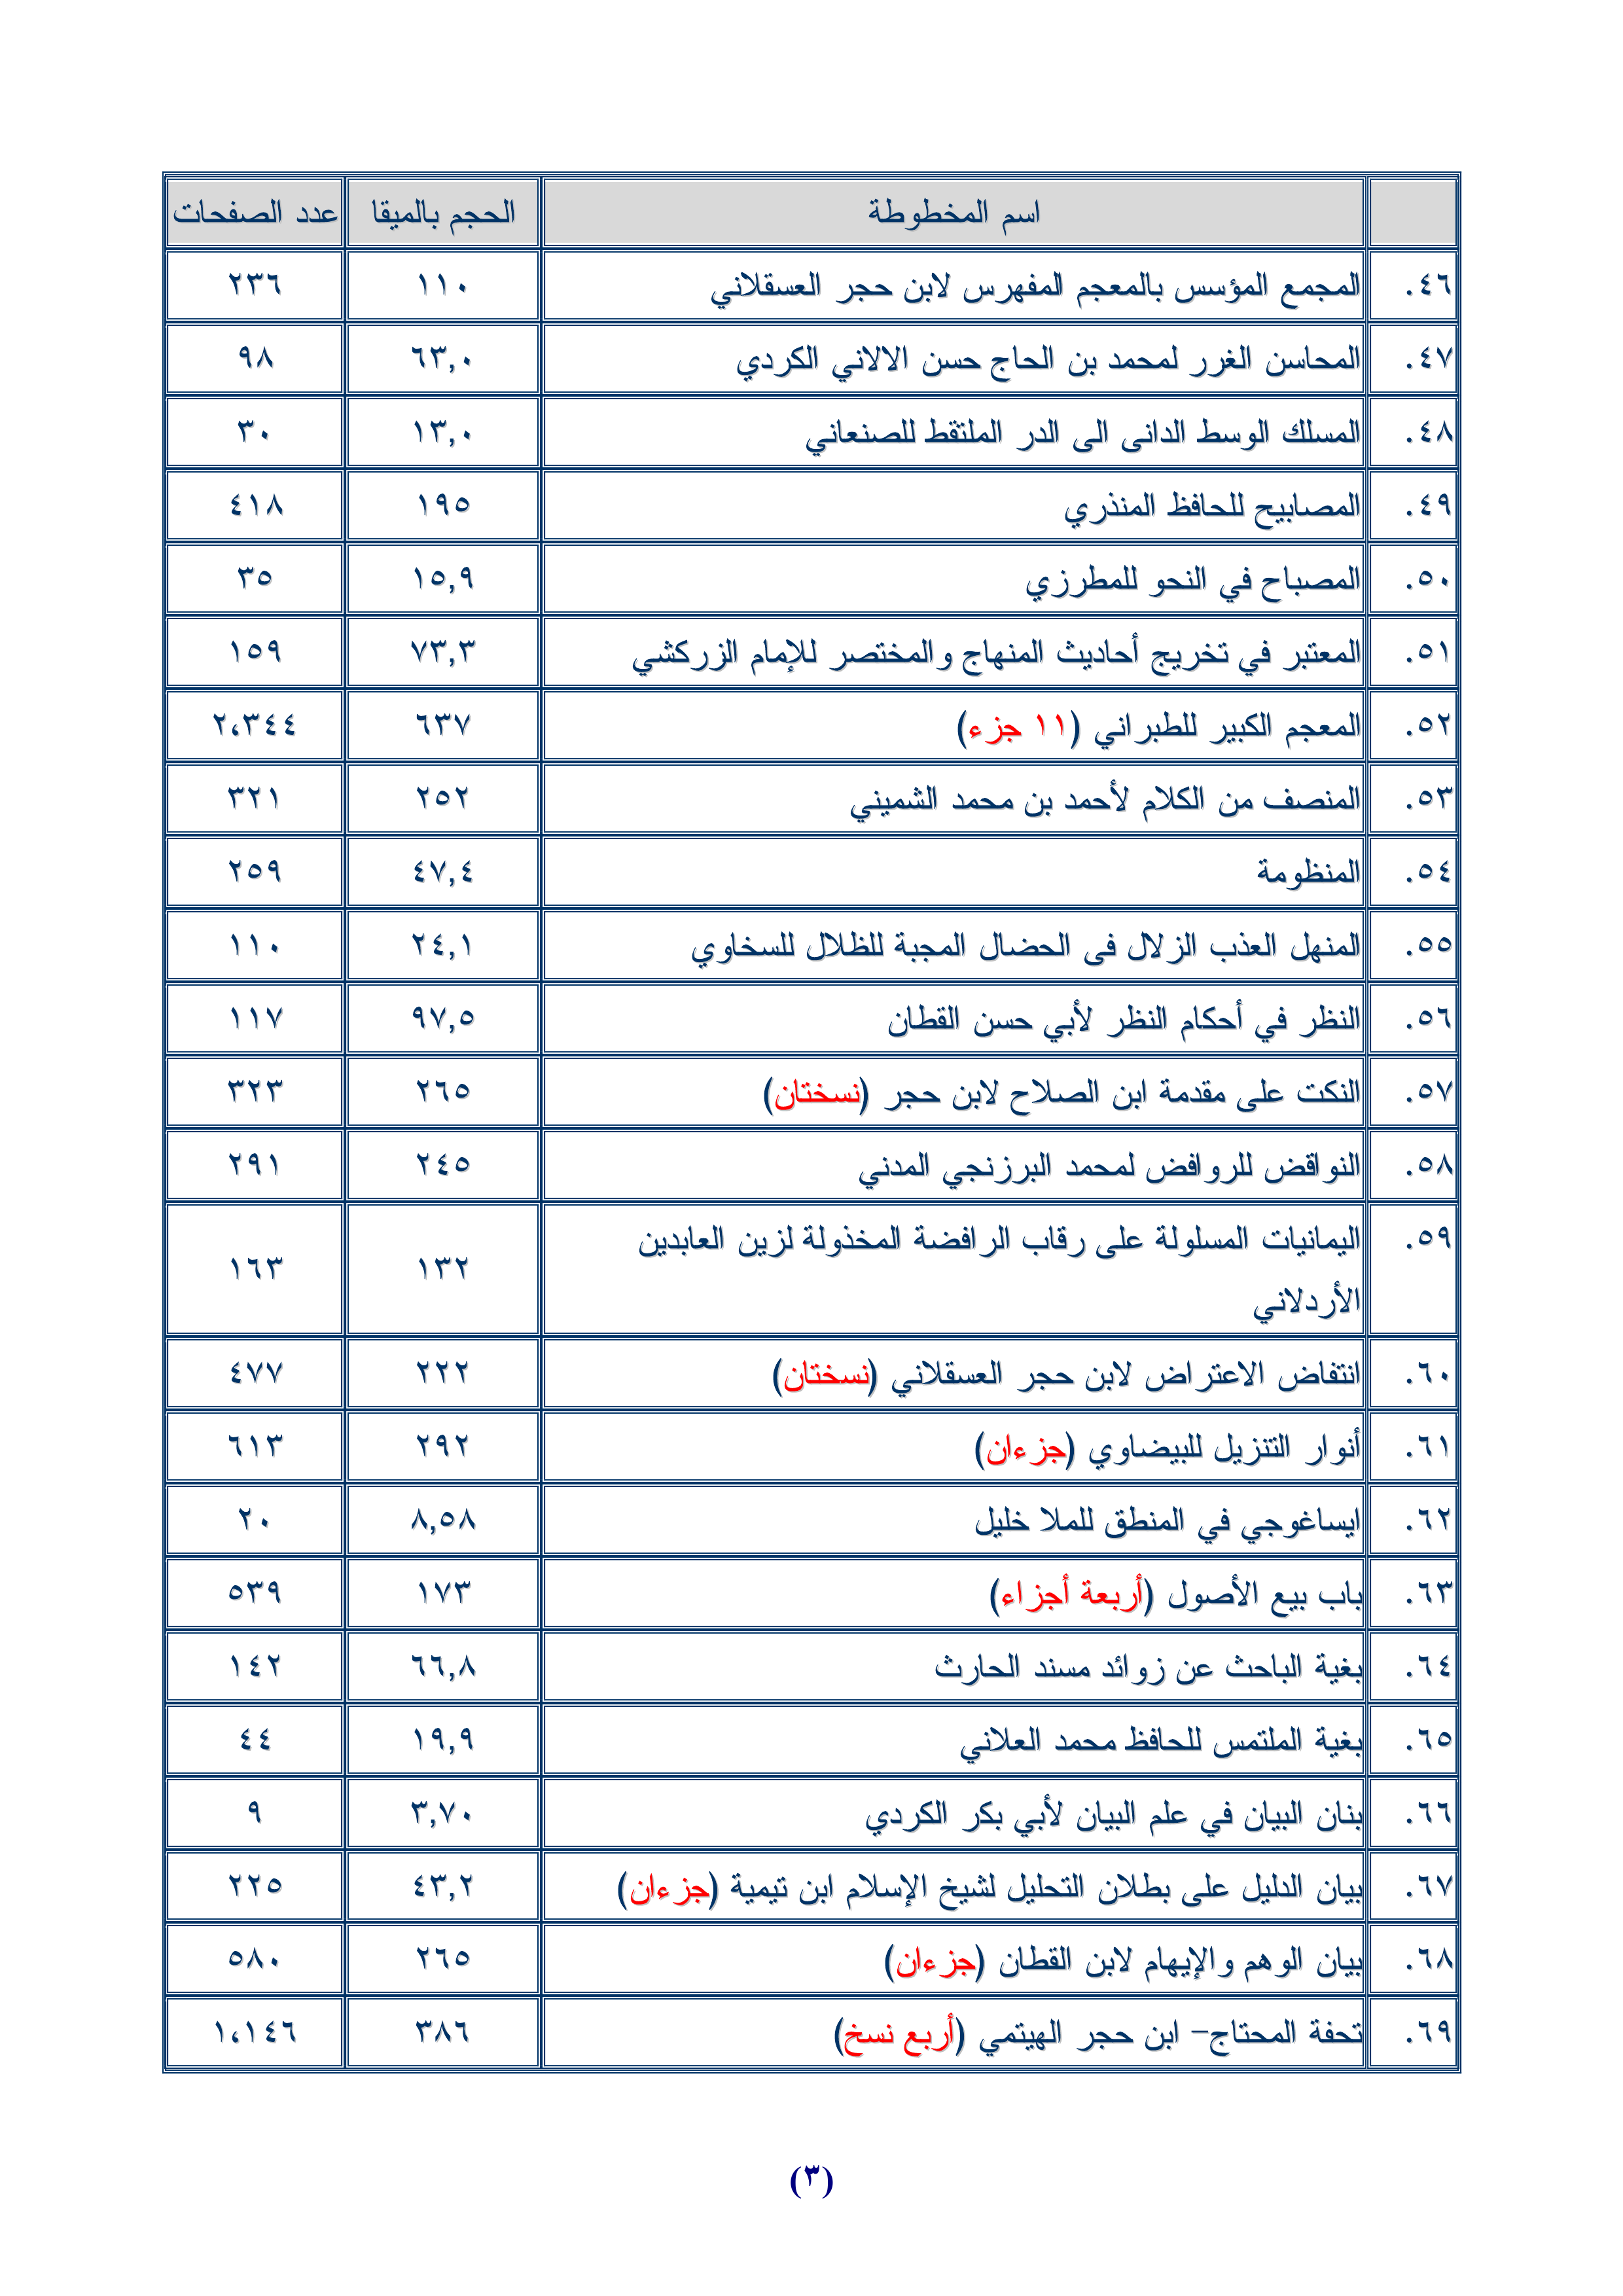 اسم المخطوطة الحجم بالميقا عدد الصفحات
٤٦. المجمع المؤسس بالمعجم المفهرس لابن حجر العسقلاني ١١٠ ٢٣٦
٤٧. المحاسن الغرر لمحمد بن الحاج حسن الالاني الكردي ٦٣,٠ ٩٨
٤٨. المسلك الوسط الدانى الى الدر الملتقط للصنعاني ١٣,٠ ٣٠
٤٩. المصابيح للحافظ المنذري ١٩٥ ٤١٨
٥٠. المصباح في النحو للمطرزي ١٥,٩ ٣٥
٥١. المعتبر في تخريج أحاديث المنهاج والمختصر للإمام الزركشي ٧٣,٣ ١٥٩
٥٢. المعجم الكبير للطبراني (١١ جزء) ٦٣٧ ٢،٣٤٤
٥٣. المنصف من الكلام لأحمد بن محمد الشميني ٢٥٢ ٣٢١
٥٤. المنظومة ٤٧,٤ ٢٥٩
٥٥. المنهل العذب الزلال فى الحضال المجبة للظلال للسخاوي ٢٤,١ ١١٠
٥٦. النظر في أحكام النظر لأبي حسن القطان ٩٧,٥ ١١٧
٥٧. النكت على مقدمة ابن الصلاح لابن حجر (نسختان) ٢٦٥ ٣٢٣
٥٨. النواقض للروافض لمحمد البرزنجي المدني ٢٤٥ ٢٩١
٥٩. اليمانيات المسلولة على رقاب الرافضة المخذولة لزين العابدين
الأردلاني ١٣٢ ١٦٣
٦٠. انتفاض الاعتراض لابن حجر العسقلاني (نسختان) ٢٢٢ ٤٧٧
٦١. أنوار التنزيل للبيضاوي (جزءان) ٢٩٢ ٦١٣
٦٢. ايساغوجي في المنطق للملا خليل ٨,٥٨ ٢٠
٦٣. باب بيع الأصول (أربعة أجزاء) ١٧٣ ٥٣٩
٦٤. بغية الباحث عن زوائد مسند الحارث ٦٦,٨ ١٤٢
٦٥. بغية الملتمس للحافظ محمد العلاني ١٩,٩ ٤٤
٦٦. بنان البيان في علم البيان لأبي بكر الكردي ٣,٧٠ ٩
٦٧. بيان الدليل على بطلان التحليل لشيخ الإسلام ابن تيمية (جزءان) ٤٣,٢ ٢٢٥
٦٨. بيان الوهم والإيهام لابن القطان (جزءان) ٢٦٥ ٥٨٠
٦٩. تحفة المحتاج- ابن حجر الهيتمي (أربع نسخ) ٣٨٦ ١،١٤٦
(٣)